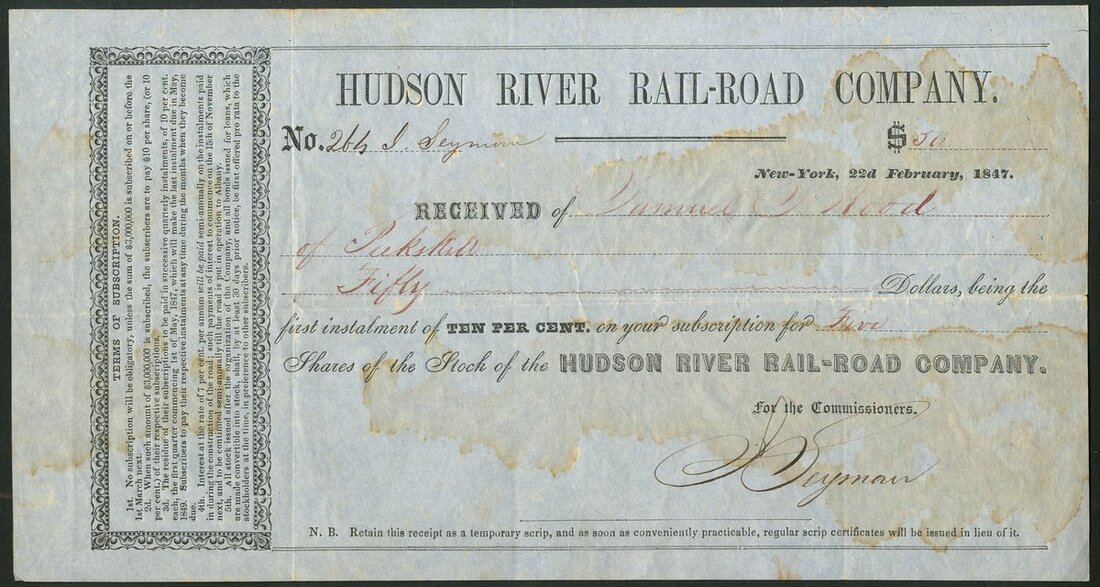 HUDSON RIVER RAIL-ROAD COMPANY.
No. 264 J. Seymour $ 50
New-York, 22d February, 1847.
RECEIVED of Samuel Wood
of Peekskill
Fifty Dollars, being the
first instalment of TEN PER CENT. on your subscription for Five
Shares of the Stock of the HUDSON RIVER RAIL-ROAD COMPANY.
For the Commissioners.
J Seymour
N. B. Retain this receipt as a temporary scrip, and as soon as conveniently practicable, regular scrip certificates will be issued in lieu of it.
TERMS OF SUBSCRIPTION.
1st. No subscription will be obligatory, unless the sum of $3,000,000 is subscribed on or before the
1st March next.
2d. When such amount of $3,000,000 is subscribed, the subscribers are to pay $10 per share, (or 10
per cent.) of their respective subscriptions.
3d. The residue of their subscriptions to be paid in successive quarterly instalments, of 10 per cent.
each, the first quarter commencing 1st of May, 1847, which will make the last instalment due in May,
1849. Subscribers to pay their respective instalments at any time during the months when they become
due.
4th. Interest at the rate of 7 per cent. per annum will be paid semi-annually on the instalments paid
in during the construction of the road; such payments of interest to commence on the 15th of November
next, and to be continued semi-annually till the road is put in operation to Albany.
5th. All stock issued after the organization of the Company, and all bonds issued for loans, which
are made convertible into stock, shall, by at least 30 days prior notice, be first offered pro rata to the
stockholders at the time, in preference to other subscribers.